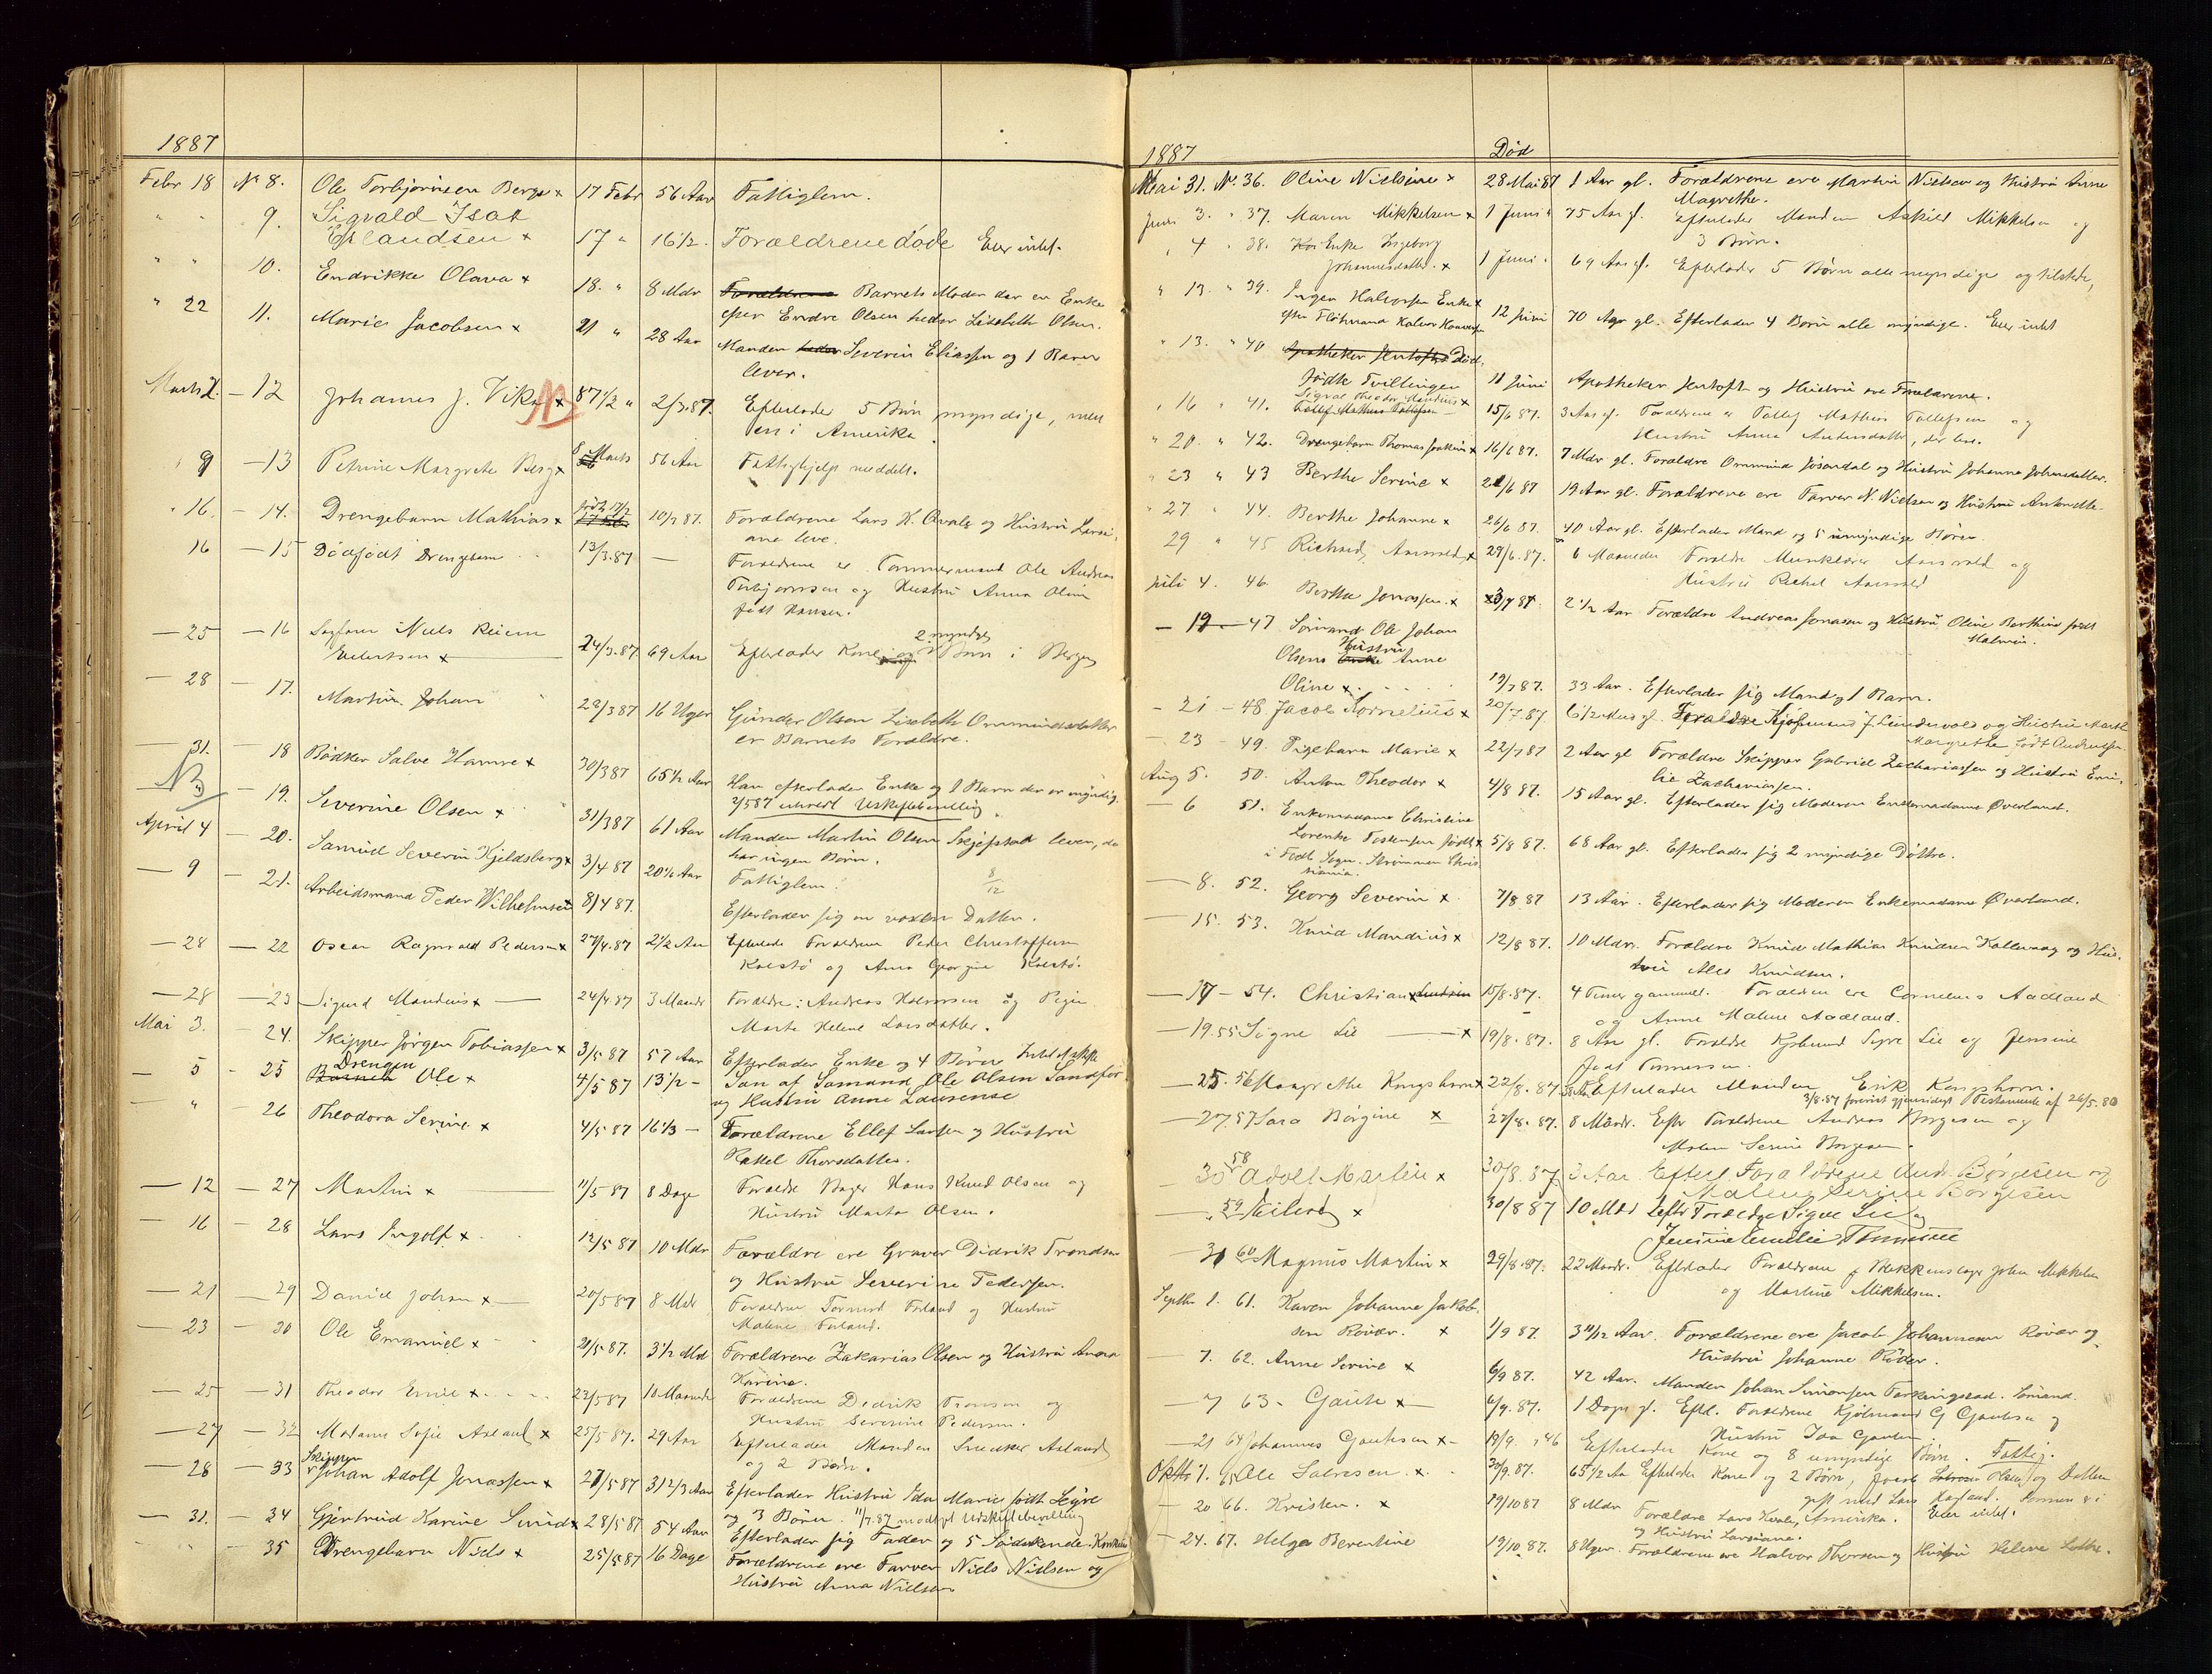 1887
Febr 18 No 8. Ole Torbjørnsen Berge x 17 Febr 56 Aar Fattiglem.
" " 9. Sigvald Isak
Erlandsen x 17 " 16 1/2. Forældrene døde Eier intet.
" " 10. Endrikke Olava x 18. " 8 Mdr Forældrene Barnets Moder der er Enke
efter Endre Olsen heder Lisebeth Olsen.
" 22 11. Marie Jacobsen x 21 " 28 Aar Manden heder Severin Eliassen og 1 Barn
lever.
Marts 7. - 12 Johannes J. Vik NB x 87 1/2 " 2/3.87. Efterlader 5 Børn myndige, men
en i Amerika
" 9 - 13 Petrine Margrete Berg x 8 Marts 56 Aar Fattighjelp meddelt.
" 16. - 14. Drengebarn Mathias x født 17/2 10/3 87. Forældrene Lars K. Qvale og Hustru Larsi-
ane leve.
16 - 15 Dødfødt Drengebarn 13/3.87 — Forældrene er Tømmermand Ole Andreas
Torbjørnsen og Hustru Anna Oline
født Hansen.
— 25 - 16 Logfører Niels Riiem
Eilertsen x 24/3.87 69 Aar Efterlader Kone og 2 myndge Børn i Bergen
— 28 - 17. Martin Johan 22/3 87 16 Uger Gunder Olsen Lisebeth Ommundsdatter
er Barnets Forældre.
— 31. - 18 Bødker Salve Hamre x 30/3 87 65 1/2 Aar Han efterlader Enke og 1 Barn der er myndig.
2/5 87 uskiftebevilling
NB - 19. Severine Olsen x 31/3 87 61 Aar Manden Martin Olsen Skjefstad lever, de
har ingen Børn.
April 4 - 20. Samuel Severin Kjeldsberg x 3/4 87 20 1/2 Aar Fattiglem. 8/12
— 9 - 21. Arbeidsmand Peder Wilhelmsen 8/4 87. Efterlader sig en voxen Datter.
— 28 - 22 Oscar Ragnvald Pedersen x 27/4.87 2 1/2 Aar Efterlade Forældrene Peder Christoffersen
Kolstø og Anna Georgine Kolstø.
— 28 - 23 Sigurd Mandius x — 24/4.87 3 Maander Forældre: Andreas Halvorsen og Pigen
Marta Helene Larsdatter.
Mai 3. - 24. Skipper Jørgen Tobiassen x 3/5 87 57 Aar Efterlader Enke og 4 Børn
— 5 - 25 Barnet Drengen Ole x 4/5 87 13 1/2 - Søn af Sømand Ole Olsen Sandfør
og Hustru Anne Laurense
— " - 26 Theodora Serine x 4/5 87 16 1/3 — Forældrene Ellef Larsen og Hustru
Rakel Thorsdatter.
— 12 - 27 Martin x — 11/5 87 8 Dage Forældre Bager Hans Knud Olsen og
Hustru Marta Olsen.
— 16 - 28 Lars Ingolf x 12/5 87 10 Mdr Forældre ere Graver Didrik Trondsen
og Hustru Severine Pedersen.
— 21 — 29 Daniel Johan x — 20/5 87 8 Mdr Forældrene Tormod Førland og Hustru
Malene Førland.
— 23 - 30 Ole Emanuel x 21/5 87. 3 1/2 Mdr Forældrene Zakarias Olsen og Hustru Anna
Karine.
— 25 - 31 Theodor Emil x 23/5 87 10 Maaneder Forældrene Dedrik Tronsen og
Hustru Severine Pedersen.
— 27 - 32 Madame Sofie Axland x 25/5 87. 29 Aar Efterlader Manden Snedker Axland
og 2 Børn.
— 28 - 33 Skipper Johan Adolf Jonassen x 27/5 87 31 2/3 Aar Efterlader Hustru Ida Marie født Seyre
og 3 Børn. 11/7.87 modtat Uskiftebevilling
— 31. - 34 Gjertrud Karine Svend x 28/5 87 54 Aar Efterlader sig Fader og 5 Sødskende.
35 Drengebarn Niels x 25/5 87 16 Dage Forældrene ere Farver Niels Nielsen og
Hustru Anna Nielsen
1887 Død
Mai 31. No. 36. Oline Nielsine x 28 Mai 87 1 Aar gl. Forældrene ere Martin Nielsen og Hustru Anne
Magrethe.
Juni 3. " 37. Maren Mikkelsen x 1 Juni " 75 Aar gl. Efterlader Manden Askild Mikkelsen og
3 Børn.
" 4 " 38. Enke Ingeborg
Johannesdatter. x 1 Juni " 69 Aar gl. Efterlader 5 Børn alle myndige og tilstede,
" 13. " 39. Inger Halvorsen Enke x
efter Halvor 12 Juni 70 Aar gl. Efterlader 4 Børn alle myndige. Eier intet
" 13. " 40 Apotheker Jentoft Død.
fødte Tvillinger 11 Juni Apotheker Jentoft og Hustru ere Forældrene.
" 16 " 41. Sigval Theodor Mandius x
Tollef Mathias Tollefsen 15/6 87. 3 Aar gl. Forældrene er Tollef Mathias Tollefsen og
Hustru Anna Andersdatter, der leve.
" 20. " 42. Drengebarn Thomas Joakim x 16/6 87. 7 Mdr gl. Forældre Ommund Jøsendal og Hustru Johanne Johnsdatter.
" 23 " 43 Berthe Serine x 21/6 87 19 Aar gl. Forældrene ere Farver N. Nielsen og Hustru Antonette.
" 27 " 44. Berthe Johanne x 26/6 87. 40 Aar gl. Efterlader Mand og 5 umyndige Børn.
29 " 45 Richard Aarsvold x 29/6.87. 6 Maaneder Forældre Murmester Aarsvold og
Hustru Rachel Aarsvold
Juli 4. 46. Berthe Jonassen x 3/7 87. 2 1/2 Aar Forældre Andreas Jonasen og Hustru Oline Berthine født
Halvorsen.
— 19 — 47 Sømand Ole Johan
Olsens Enke Hustru Anne
Oline x 19/7 87. 33 Aar. Efterlader sig Mand og 1 Barn.
— 21 — 48 Jacob Kornelius x 20/7.87. 6 1/2 Forældre Kjøbmand J. Lindervold og Hustru Marth
Margrethe født Andersen.
— 23 — 49. Pigebarn Marie x 22/7 87 2 Aar gl Forældre Skipper Gabriel Zachariassen og Hustru Emi-
lie Zachariassen.
Aug 5. 50. Anton Theodor x 4/8 87. 15 Aar gl. Efterlader sig Moderen Enkemadame Øverland.
— 6 51. Enkemadame Christine
Lorentse Torstensen født x 5/8 87. 68 Aar gl. Efterlader sig 2 myndige Døttre.
i Fedt Sogn. Strømmen Chris
tiania.
— 8. 52. Georg Severin x 7/8 87 13 Aar. Efterlader sig Moderen Enkemadame Øverland.
— 15. 53. Knud Mandius x 12/8 87. 10 Mdr. Forældre Knud Mathias Knudsen Kallevaag og Hus-
tru Ales Knudsen.
— 17 — 54. Christian x 15/8.87. 4 Timer gammel. Forældren ere Cornelius Aadland
og Anne Malene Aadland.
— 19. 55 Signe Lie — x 19/8.87. 8 Aar gl. Forældre Kjøbmand Sigve Lie og Jensine
født Tønnesen.
— 25. 56 Margrethe Kongshavn x 22/8.87 Efterlader Manden Erik Kongshavn.
3/8.87 forevist gjensidigt Testamente af 26/5.80
— 27. 57 Sara Børgine x 27/8.87. 8 Maandr. Eftr Forældrene Andreas Børgesen og
Malene Serine Børgesen
— 30 58 Adolf Martin x 30/8.87. 3 Aar. Efterl. Forældrene Andr. Børgesen og
Malene Serine Børgesen
— " 59 Eilert x 30/8 87 10 Mdr Eftr Forældre Sigve Lie og
Jensine Emilie Tønnesen
— 31 60 Magnus Martin x 29/8.87. 22 Maandr. Efterlader Forældrene Blikkenslager John Mikkelsen
og Martine Mikkelsen.
Septbr 1. 61. Karen Johanne Jakob-
sen Røvær. x 1/9 87. 3 11/12 Aar. Forældrene ere Jacob Johannesen Røvær og
Hustru Johanne Røvær.
— 7. 62. Anne Serine x 6/9 87. 42 Aar. Manden Johan Simonsen Førkingstad. Sømand.
— 7 63. Gaute x — 6/9.87. 1 Døgn gl. Eftl. Forældrene Kjøbmand G Gautesen og
Hustru Ida Gautesen.
— 21 64 Johannes Gautesen x — 19/9. 46 Efterlader Kone og 8 umyndige Børn. Fattig.
Oktbr 1. 65 Ole Salvesen x 30/9.87. 65 1/2 Aar Efterlader Kone og 2 Børn, Olsen og Datter
gift med Lars Hagland. Sønnen er i
Amerika. Eier intet.
— 20 66. Kristen. x 19/10 87 8 Mdr Forældre Lars Kvale
og Hustru Larsiane.
— 24. 67. Helga Berentine 19/10.87. 8 Uger. Forældrene ere Halvor Thorsen og Hustru Helene